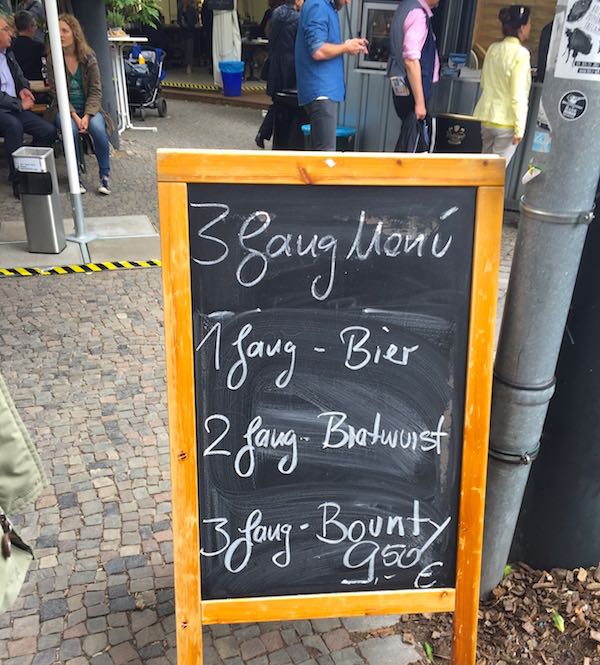 3 Gang Menü
1 Gang - Bier
2 Gang - Bratwurst
3 Gang - Bounty
9,50 €